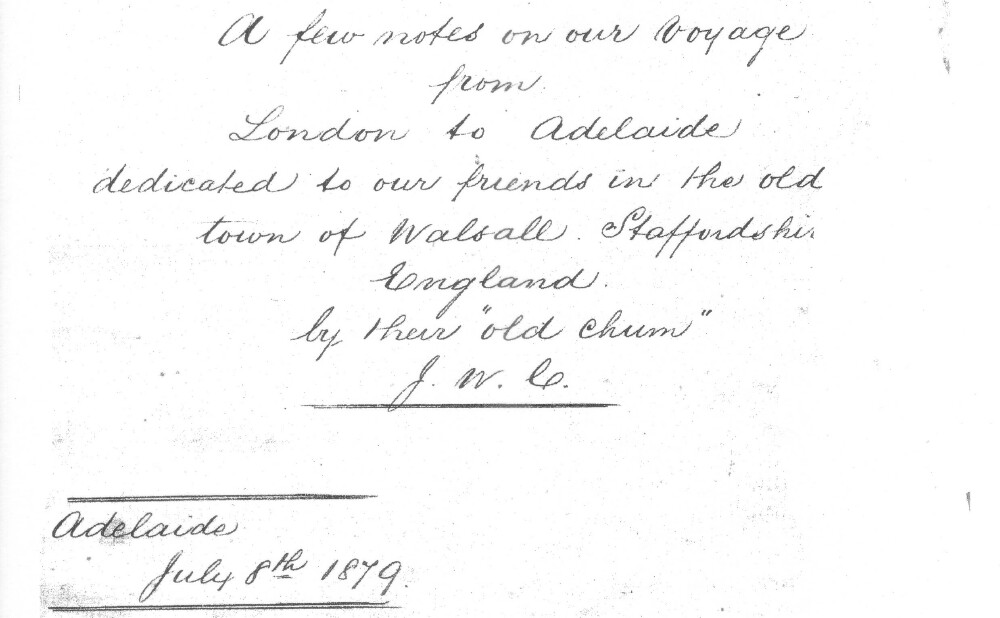 A few notes on our Voyage
from
London to Adelaide
dedicated to our friends in the old
town of Walsall. Staffordshir
England.
by their "old chum"
J. W. C.
Adelaide
July 8th 1879.